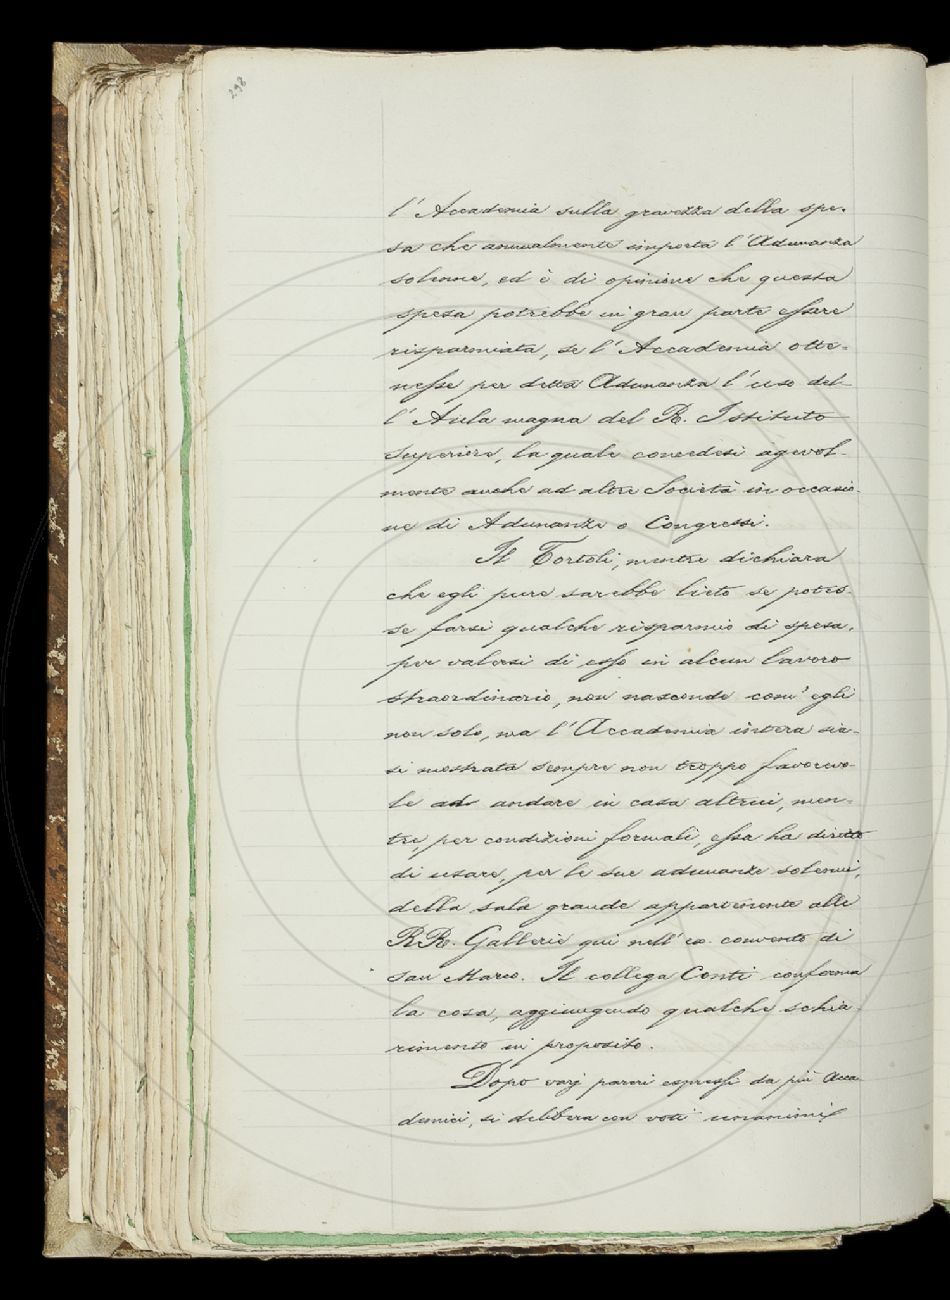 298
l'Accademia sulla gravezza della spe-
sa che annualmente importa l'Adunanza
solenne, ed è di opinione che questa
spesa potrebbe in gran parte essere
risparmiata, se l'Accademia otte-
nesse per detta Adunanza l'uso del-
l'Aula magna del R. Istituto
Superiore, la quale concedesi agevol-
mente anche ad altre Società in occasio-
ne di Adunanze o Congressi.
Il Tortoli, mentre dichiara
che egli pure sarebbe lieto se potes-
se farsi qualche risparmio di spesa,
per valersi di esso in alcun lavoro
straordinario, non nasconde com'egli
non solo, ma l'Accademia intera sia-
si mostrata sempre non troppo favorevo-
le ad andare in casa altrui, men-
tre, per condizioni formali, essa ha diritto
di usare, per le sue adunanze solenni,
della sala grande appartenente alle
RR. Gallerie qui nell'ex convento di
San Marco. Il collega Conti conferma
la cosa, aggiungendo qualche schia-
rimento in proposito.
Dopo varj pareri espressi da più Acca-
demici, si delibera con voti unanimi